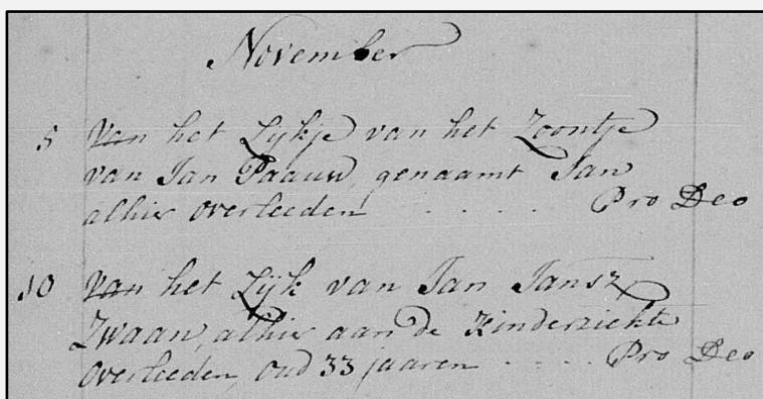 November
5 Van het Lykje van het Zoontje
van Jan Paauw, genaamt Jan
alhier overleeden . . . . . Pro Deo
10 Van het Lijk van Jan Jansz
Zwaan, alhier aan de Kinderziekte
overleeden, oud 33 jaaren . . . . Pro Deo